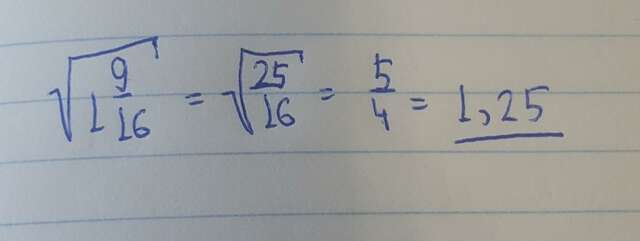 √(1 9/16) = √(25/16) = 5/4 = 1,25